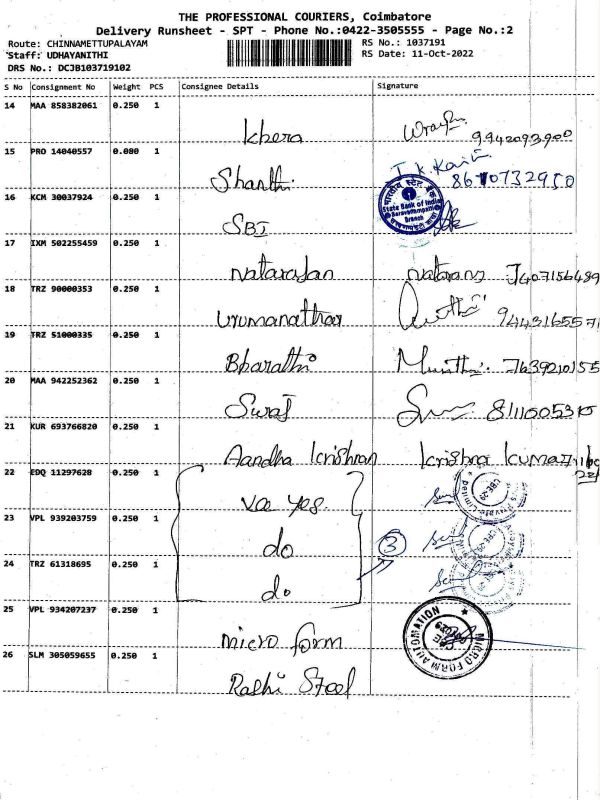 THE PROFESSIONAL COURIERS, Coimbatore
Delivery Runsheet - SPT - Phone No.:0422-3505555 - Page No.:2
Route: CHINNAMETTUPALAYAM
RS No.: 1037191
Staff: UDHAYANITHI
RS Date: 11-Oct-2022
DRS No.: DCJB103719102
S No Consignment No Weight PCS Consignee Details Signature
14 MAA 858382061 0.250 1
Khera 9942093900
15 PRO 14040557 0.080 1
Shanthi 8610732950
16 KCM 30037924 0.250 1
State Bank of India
Branch
SBI
17 IXM 502255459 0.250 1
Natarajan 7407156489
18 TRZ 90000353 0.250 1
Urumanathar 9443165571
19 TRZ 51000335 0.250 1
Bharathi 7639210155
20 MAA 942252362 0.250 1
Swaj 8111005315
21 KUR 693766820 0.250 1
Aandha Krishnan Krishna Kumar
22 EDQ 11297628 0.250 1
Va yes.
23 VPL 939203759 0.250 1
do 3
24 TRZ 61318695 0.250 1
do
25 VPL 934207237 0.250 1
Micro form
MICRO FORM AUTOMATION
26 SLM 305059655 0.250 1
Rashi Steel